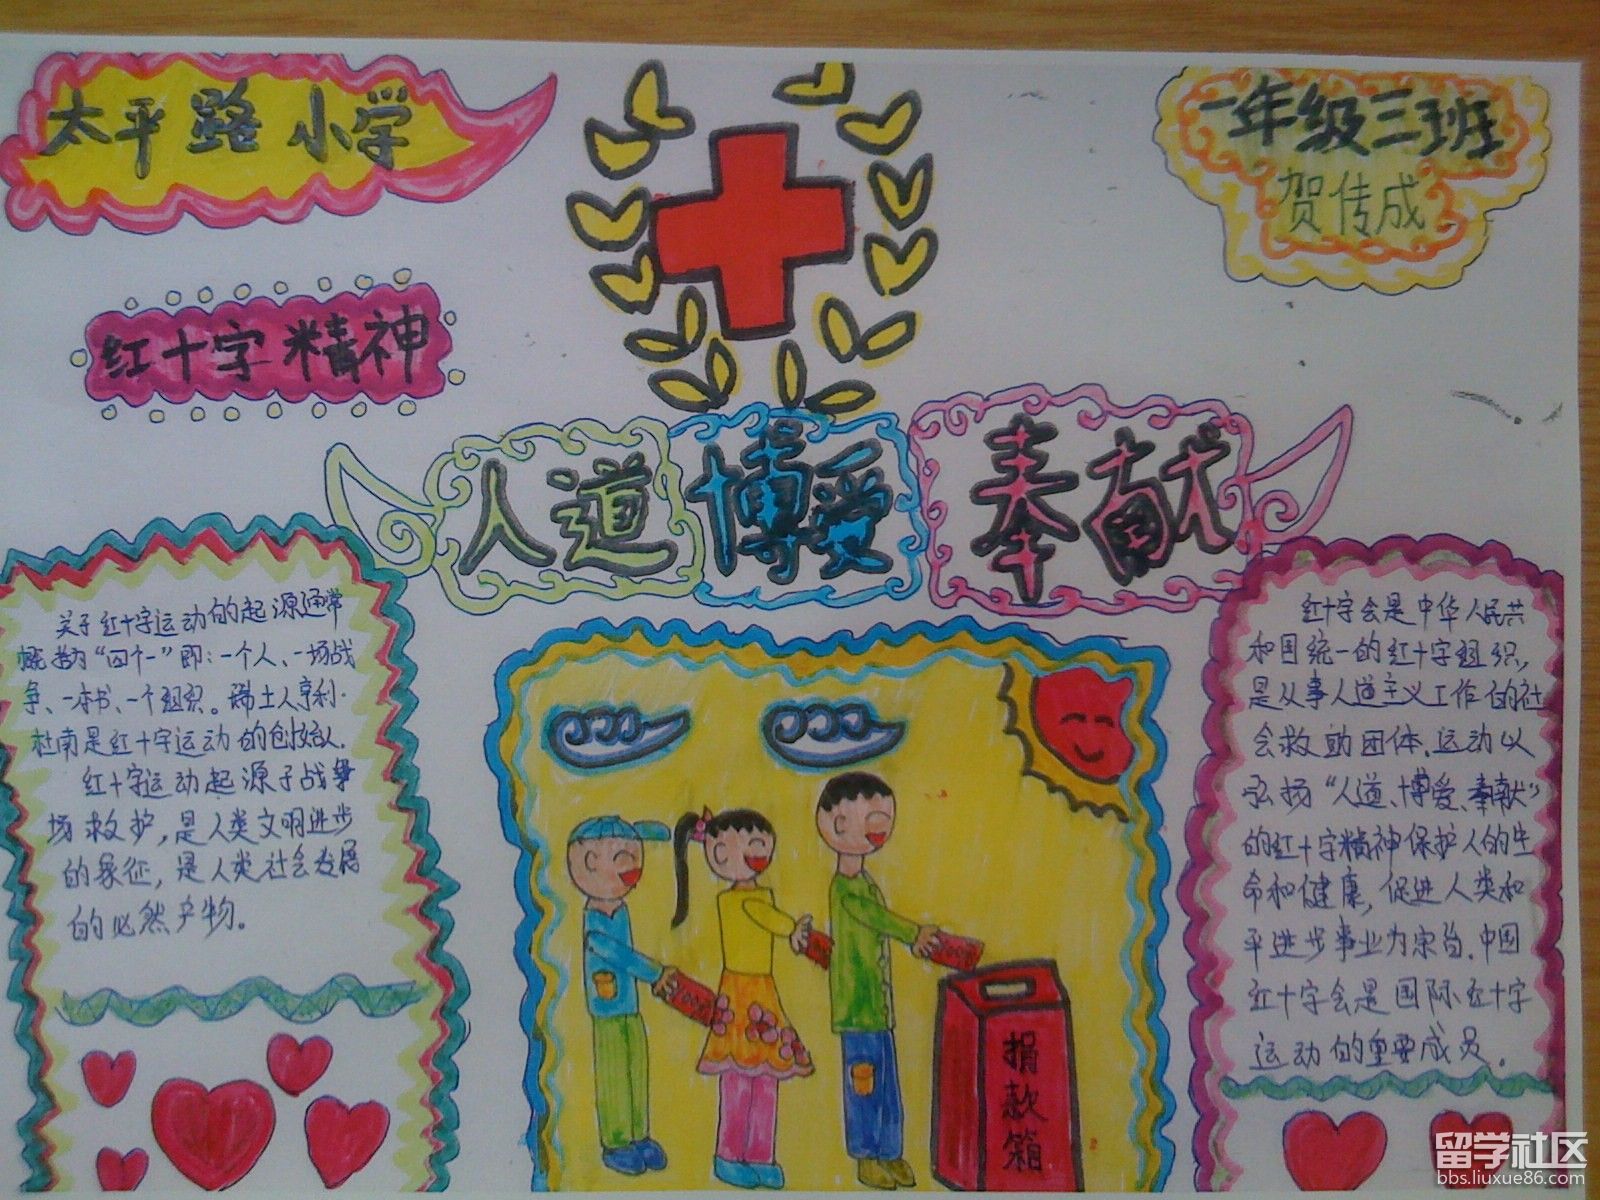 太平路小学
一年级三班
贺传成
红十字精神
人道博爱奉献
关于红十字运动的起源通常
概括为“四个一”即:一个人、一场战
争、一本书、一个组织。瑞士人亨利·
杜南是红十字运动的创始人.
红十字运动起源于战争
场救护,是人类文明进步
的象征,是人类社会发展
的必然产物。
红十字会是中华人民共
和国统一的红十字组织,
是从事人道主义工作的社
会救助团体.运动以
弘扬“人道、博爱、奉献”
的红十字精神保护人的生
命和健康,促进人类和
平进步事业为宗旨.中国
红十字会是国际红十字
运动的重要成员。
100
100
捐款箱
留学社区
bbs.liuxue86.com